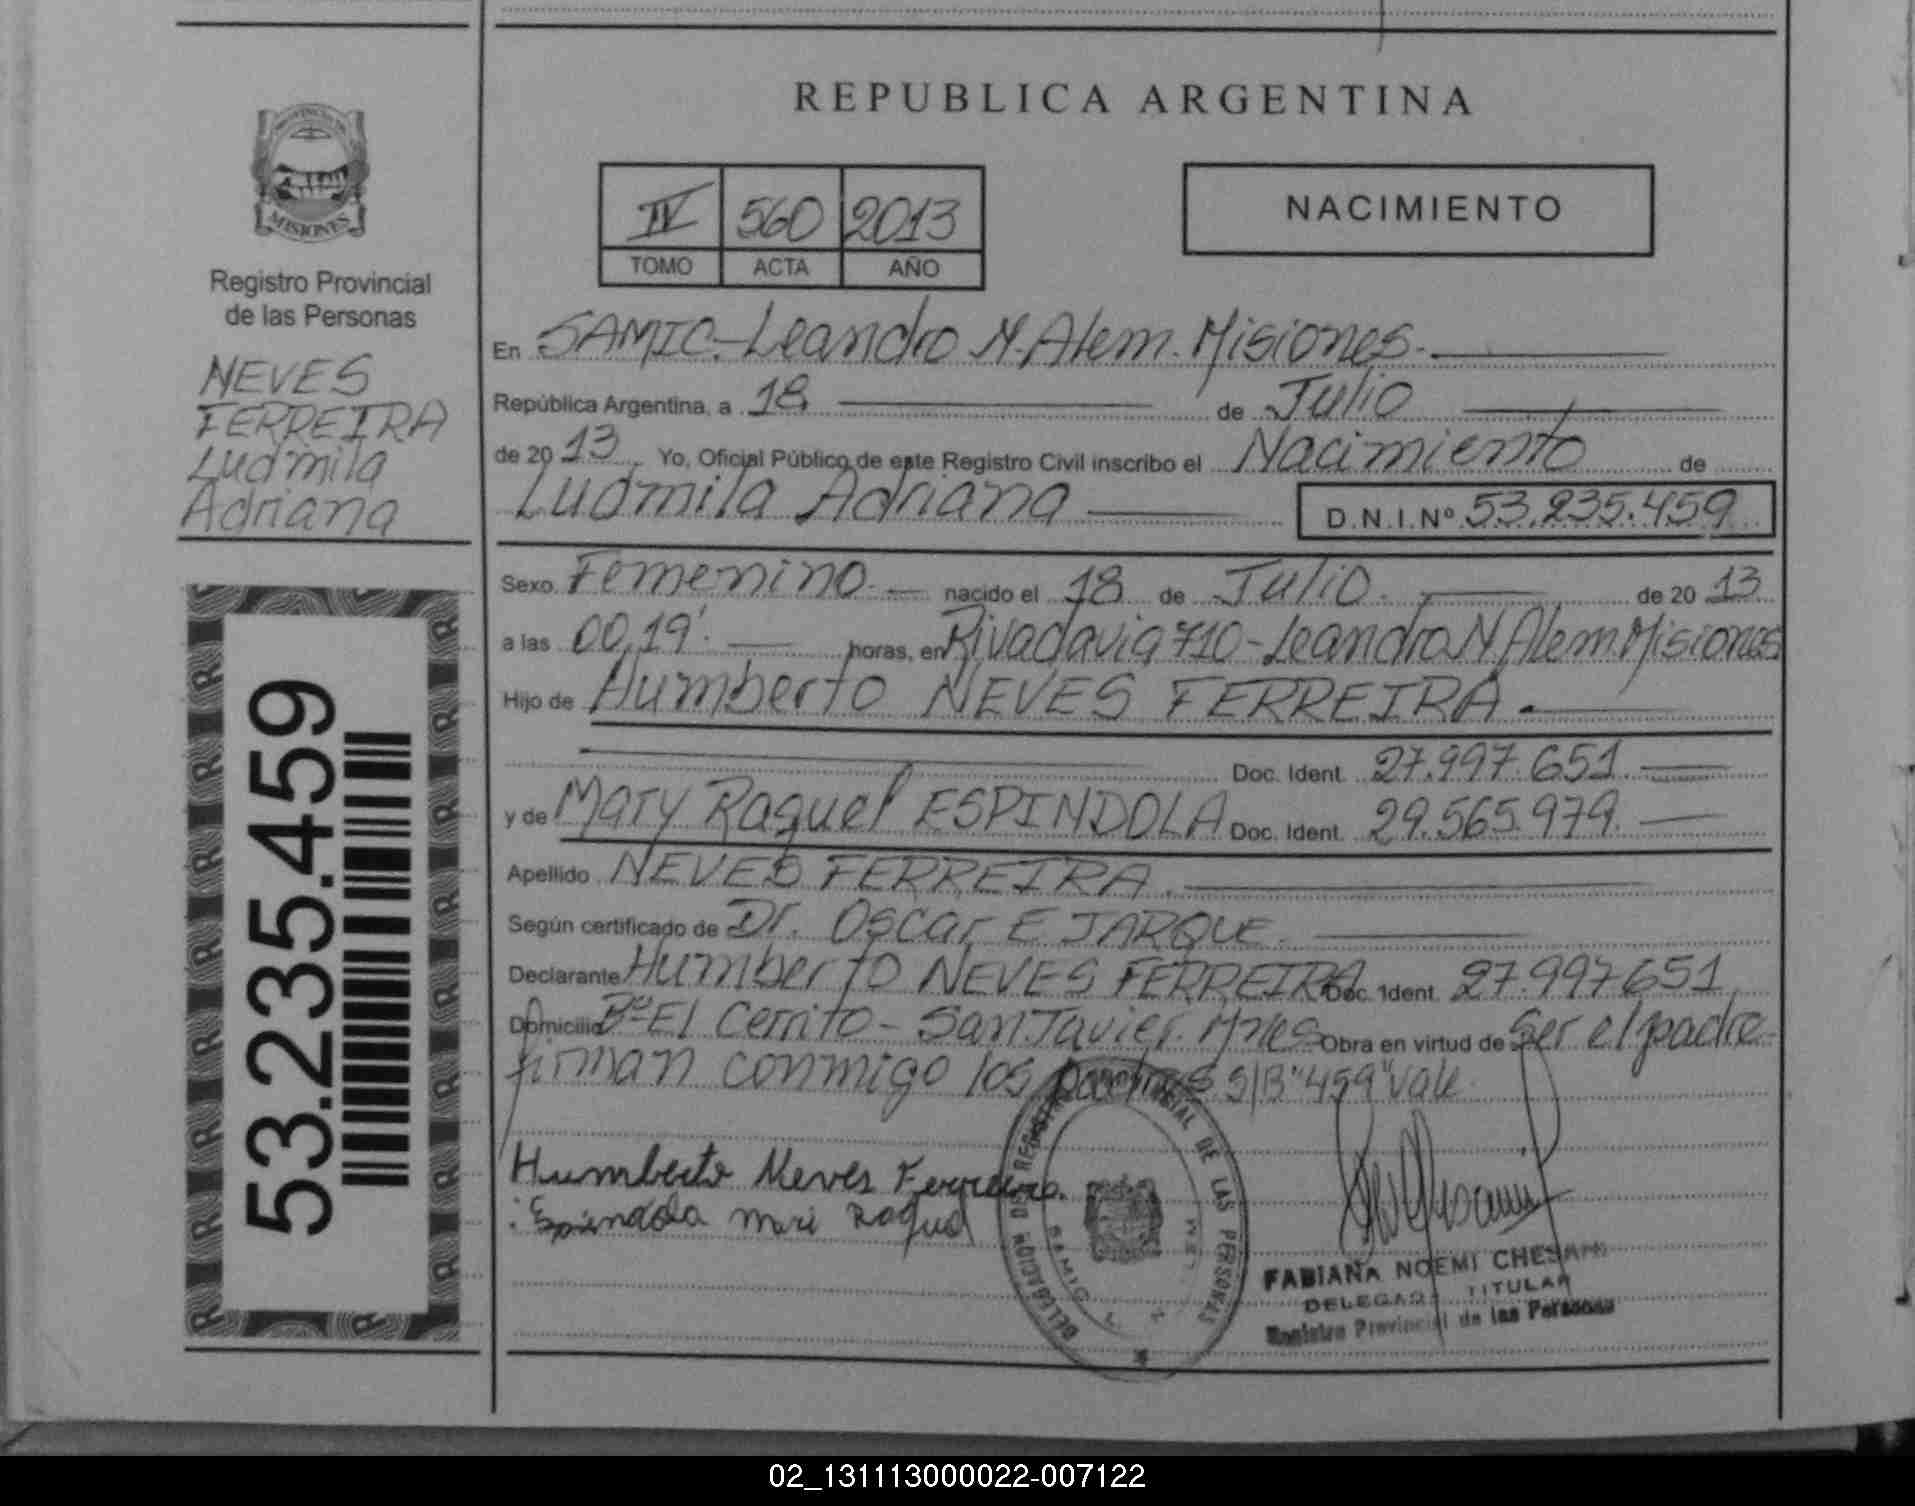 PROVINCIA DE
MISIONES
Registro Provincial
de las Personas
NEVES
FERREIRA
Ludmila
Adriana
53.235.459
REPUBLICA ARGENTINA
IV 560 2013
TOMO ACTA AÑO
NACIMIENTO
En SAMIC.-Leandro N. Alem. Misiones.-
República Argentina, a 18 de Julio
de 2013 Yo, Oficial Público de este Registro Civil inscribo el Nacimiento de
Ludmila Adriana D.N.I.Nº 53.235.459
Sexo Femenino.- nacido el 18 de Julio. de 2013
a las 00,19'. horas, en Rivadavia 710-Leandro N Alem. Misiones
Hijo de Humberto NEVES FERREIRA.
Doc. Ident. 27.997.651
y de Mary Raquel ESPINDOLA Doc. Ident. 29.565.979.
Apellido NEVES FERREIRA.
Según certificado de Dr. Oscar E JARQUE.
Declarante Humberto NEVES FERREIRA Doc. Ident. 27.997651
Domicilio Bº El Cerrito - San Javier. Mnes Obra en virtud de Ser el padre-
firman conmigo los padres S/B "459" Vale.
Humberto Neves Ferreira.
Espindola Mari Raquel
DELEGACION DEL REGISTRO PROVINCIAL DE LAS PERSONAS
SAMIC L. N.
FABIANA NOEMI CHESANI
DELEGADA TITULAR
Registro Provincial de las Personas
02_131113000022-007122